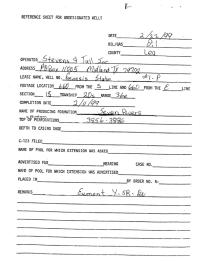 REFERENCE SHEET FOR UNDESIGNATED WELLS
DATE 2/22/99
OIL/GAS Oil
COUNTY Lea
OPERATOR Stevens & Tull Inc
ADDRESS P.O. Box 11005 Midland TX 79702
LEASE NAME, WELL NO. State #1-P
FOOTAGE LOCATION 660 FROM THE S LINE AND 660 FROM THE E LINE
SECTION TOWNSHIP 20s RANGE 36e
COMPLETION DATE 2/10/99
NAME OF PRODUCING FORMATION Seven Rivers
TOP OF PERFORATIONS 3886
DEPTH TO CASING SHOE
C-123 FILED
NAME OF POOL FOR WHICH EXTENSION WAS ASKED
ADVERTISED FOR HEARING CASE NO.
NAME OF POOL FOR WHICH EXTENSION WAS ADVERTISED
PLACED IN BY ORDER NO. R-
REMARKS Eumont Y-SR-